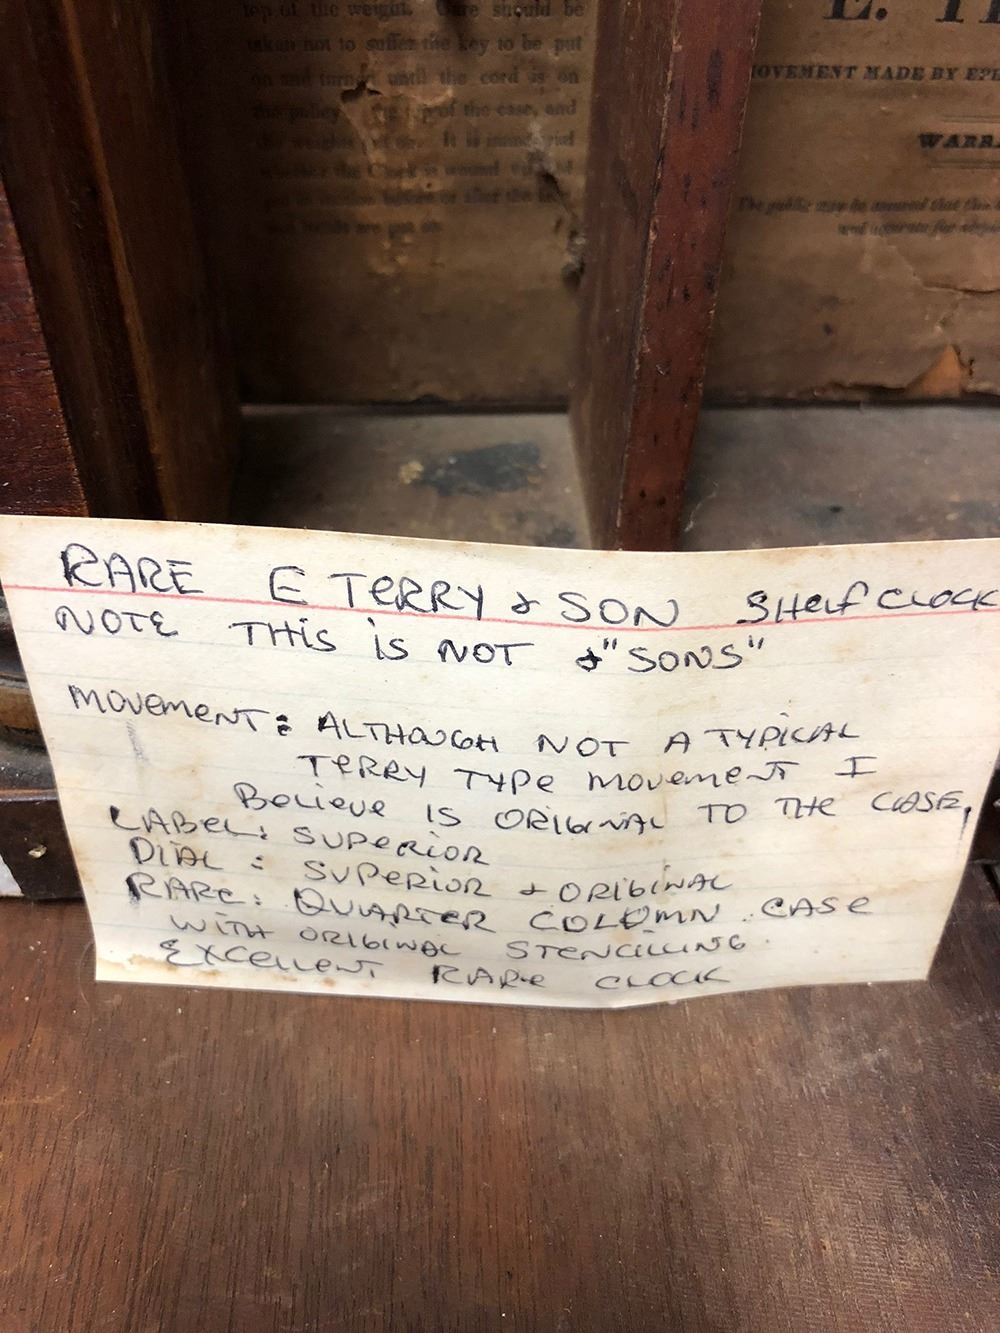 top of the weight. Care should be
taken not to suffer the key to be put
on and turned until the cord is on
the pulley top of the case, and
the weights put on. It is immaterial
whether the Clock is wound up and
put in motion before or after the
and hands are put on.
E. T
MOVEMENT MADE BY EPH
WARRA
The public may be assured that this
and accurate for
RARE E TERRY & SON SHelf CLOCK
NOTE THIS IS NOT &"SONS"
MOVEMENT: ALTHOUGH NOT A TYPICAL
TERRY TYPE MOVEMENT I
BELIEVE IS ORIGINAL TO THE CASE,
LABEL: SUPERIOR
DIAL: SUPERIOR & ORIGINAL
RARE: QUARTER COLUMN CASE
WITH ORIGINAL STENCILLING
EXCELLENT RARE CLOCK